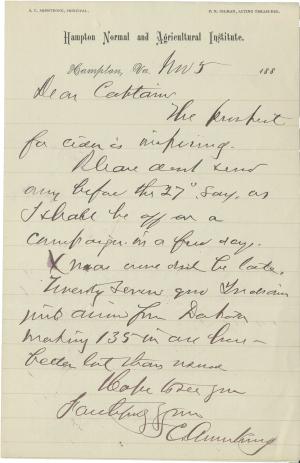 S. C. ARMSTRONG, PRINCIPAL.
F. N. GILMAN, ACTING TREASURER.
Hampton Normal and Agricultural Institute.
Hampton, Va. Nov 5 188
Dear Captain
The prospect
for cider is inspiring.
Please dont send
any before the 27" say, as
I shall be off on a
campaign in a few days.
be late.
Twenty Seven Indians
just arrived from Dakota
making 135 in all here -
better lot than usual
Hope to see you
Faithfully yours
S C Armstrong